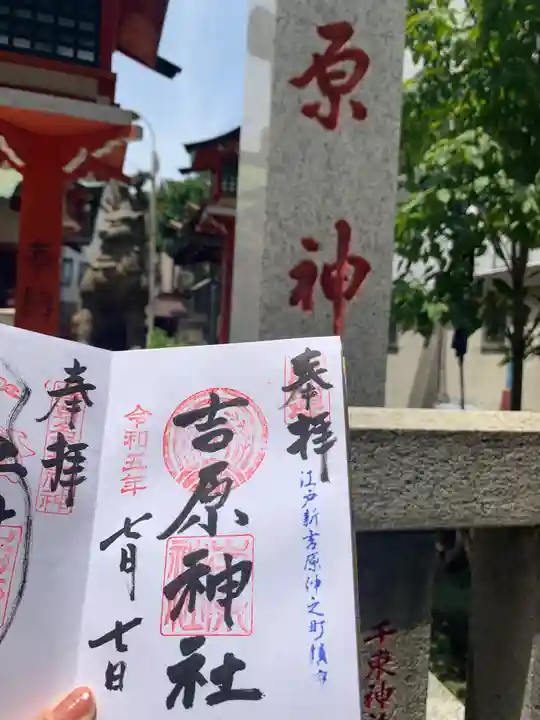 原神
奉拝
江戸新吉原仲之町鎮守
吉原神社
令和五年
七月七日
奉拝
千束神